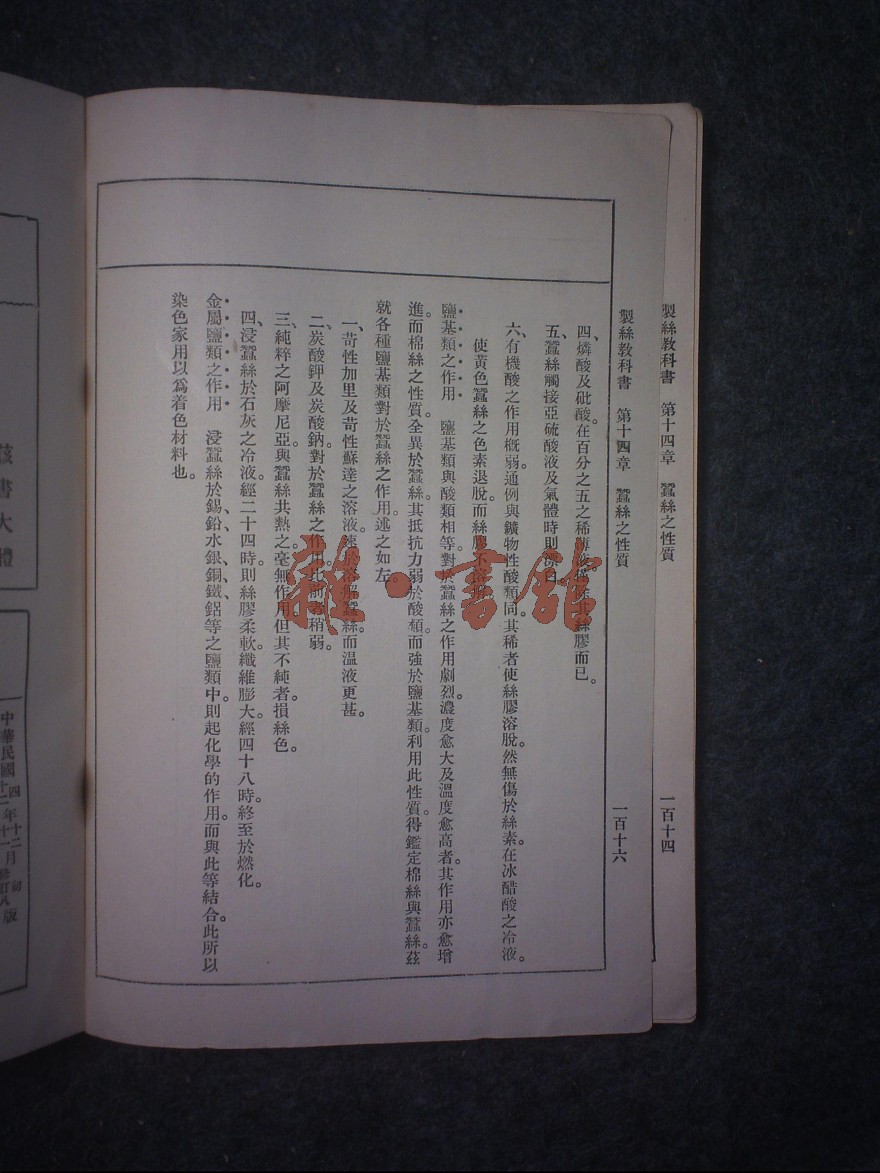 製絲教科書　第十四章　蠶絲之性質　一百十四
製絲教科書　第十四章　蠶絲之性質　一百十六
四、燐酸及砒酸。在百分之五之稀液其絲膠而已。
五、蠶絲觸接亞硫酸液及氣體時則漂白。
六、有機酸之作用概弱。通例與鑛物性酸類同。其稀者使絲膠溶脫。然無傷於絲素。在冰醋酸之冷液。
使黃色蠶絲之色素退脫。而絲膠不
鹽基類之作用　鹽基類與酸類相等。對於蠶絲之作用劇烈。濃度愈大及溫度愈高者。其作用亦愈增
進。而棉絲之性質。全異於蠶絲。其抵抗力弱於酸類。而強於鹽基類。利用此性質。得鑑定棉絲與蠶絲。茲
就各種鹽基類對於蠶絲之作用。述之如左。
一、苛性加里及苛性蘇達之溶液。速溶解蠶絲。而温液更甚。
二、炭酸鉀及炭酸鈉。對於蠶絲之作用。比前者稍弱。
三、純粹之阿摩尼亞。與蠶絲共熱之。毫無作用。但其不純者。損絲色。
四、浸蠶絲於石灰之冷液。經二十四時。則絲膠柔軟。纖維膨大。經四十八時。終至於燃化。
金屬鹽類之作用　浸蠶絲於錫、鉛、水銀、銅、鐵、鋁等之鹽類中。則起化學的作用。而與此等結合。此所以
染色家用以爲着色材料也。
雜·書館
書大體
中華民國